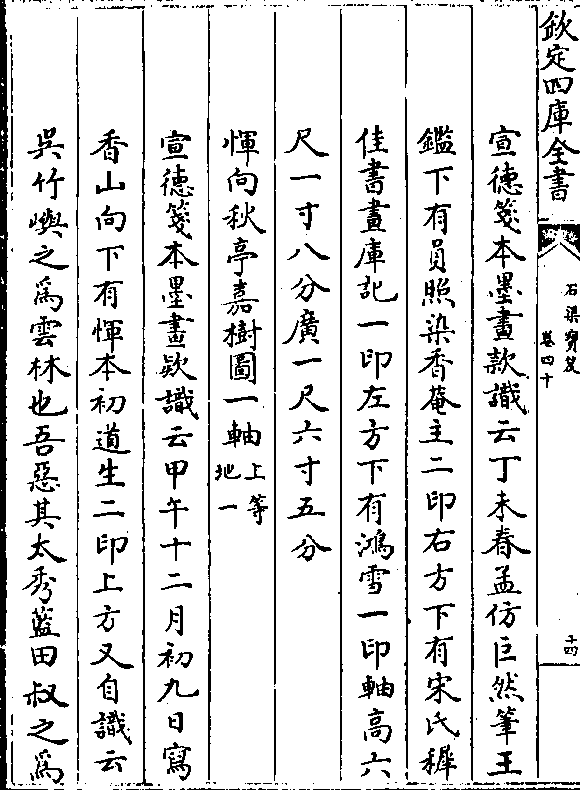 欽定四庫全書
石渠寶笈
卷四十
十四
宣德箋本墨畫款識云丁未春孟仿巨然筆王
鑑下有員照染香菴主二印右方下有宋氏穉
佳書畫庫記一印左方下有鴻雪一印軸高六
尺一寸八分廣一尺六寸五分
惲向秋亭嘉樹圖一軸上等地一
宣德箋本墨畫欵識云甲午十二月初九日寫
香山向下有惲本初道生二印上方又自識云
吳竹嶼之爲雲林也吾惡其太秀藍田叔之爲